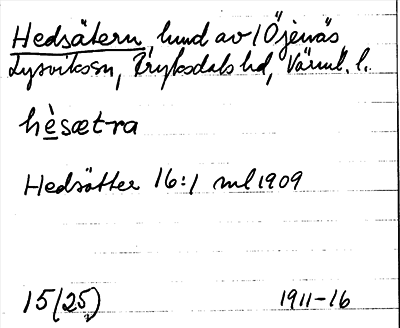 Hedsätern, lund av 1 Öjenäs
Lysvikssn, Fryksdals hd, Värml. l.
hèsætra
Hedsätter 16:1 ml 1909
15(25)
1911-16